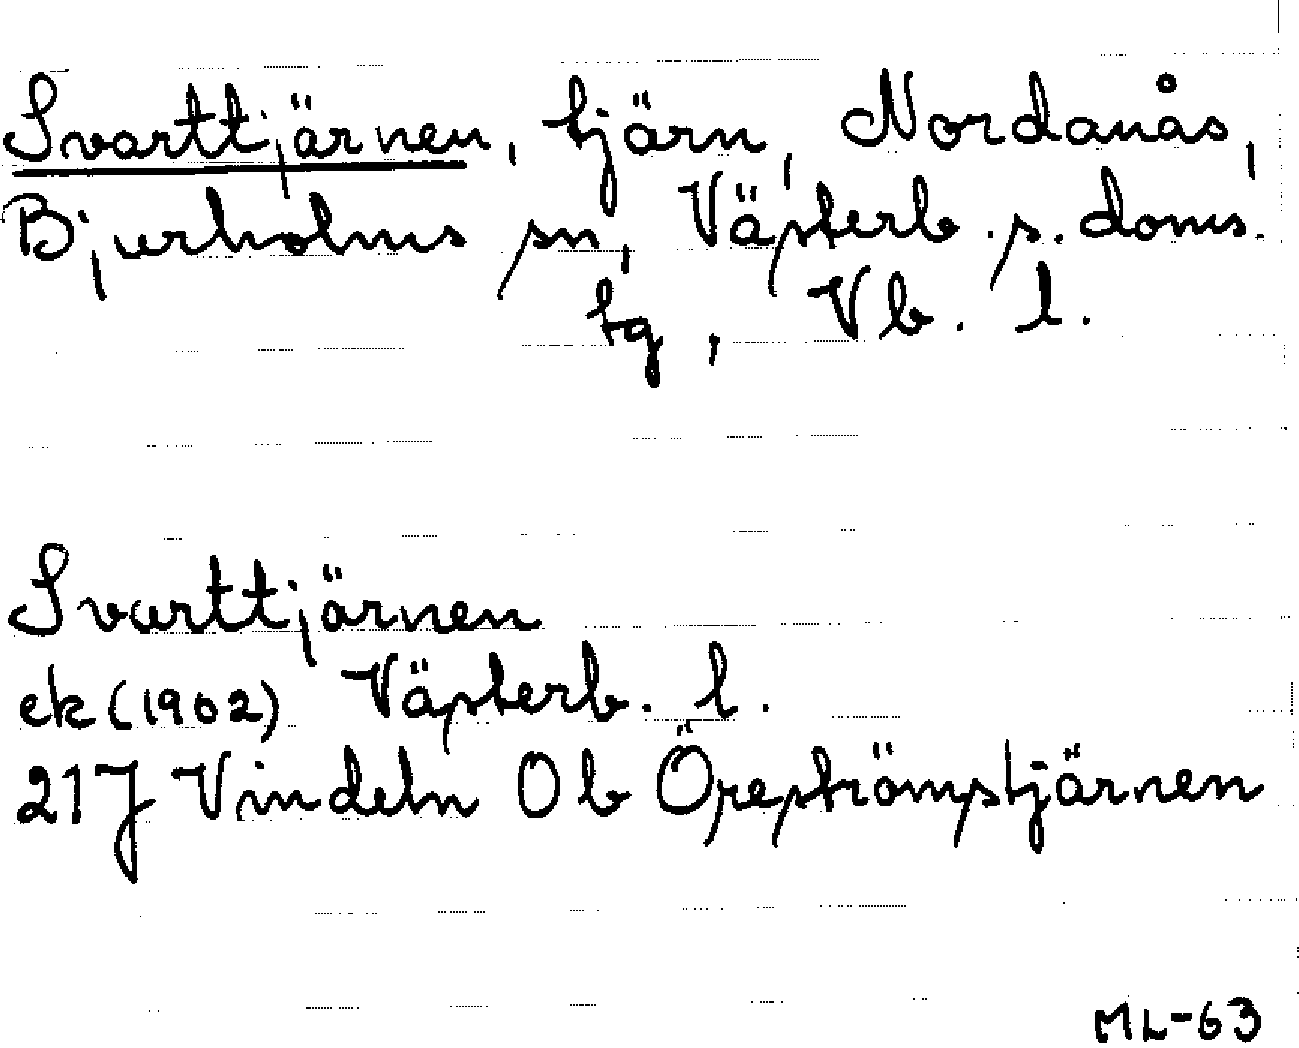 Svarttjärnen, tjärn, Nordanås,
Bjurholms sn, Västerb. s. doms.
tg, Vb. l.
Svarttjärnen
ek (1902) Västerb. l.
21J Vindeln 0b Örepströmstjärnen
ML-63